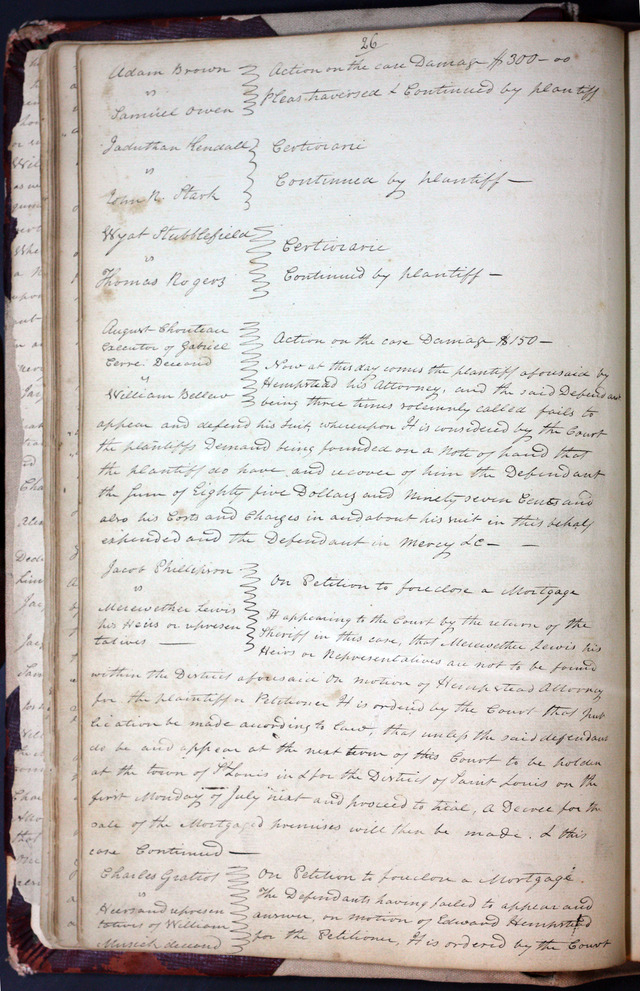 26
Adam Brown
vs
Samuel Owen
Action on the case Damage $300-00
Pleas traversed & Continued by plantiff
Jaduthan Kendall
vs
John R. Stark
Certiorarie
Continued by plantiff —
Wyat Stubblefield
vs
Thomas Rogers
Certiorarie
Continued by plantiff —
August Chouteau
Executor of Gabriel
Cerre Deceased
vs
William Bellew
Action on the case Damage $150 —
Now at this day comes the plantiff aforesaid by
Hempstead his Attorney, and the said Defendant
being three times solemnly called fails to
appear and defend his Suit, whereupon It is considered by the Court
the plantiffs Demand being founded on a Note of hand that
the plantiff do have and recover of him the Defendant
the sum of Eighty five Dollars and Ninety seven Cents and
also his Costs and Charges in and about his suit in this behalf
expended and the Defendant in Mercy &c —
Jacob Phillipson
vs
Merewether Lewis
his Heirs or represen
tatives —
On Petition to foreclose a Mortgage
It appearing to the Court by the return of the
Sheriff in this case, that Merewether Lewis his
Heirs or Representatives are not to be found
within the District aforesaid On motion of Hempstead Attorney
for the plaintiff or Petitioner It is ordered by the Court that pub
lication be made according to law, that unless the said defendant
do be and appear at the next term of this Court to be holden
at the town of St Louis in & for the District of Saint Louis on the
first Monday of July next and proceed to trial, A Decree for the
sale of the Mortgaged premises will then be made. & this
case Continued —
Charles Gratiot
vs
Heirs and represen
tatives of William
Musick deceased
On Petition to foreclose a Mortgage.
The Defendants having failed to appear and
answer, on motion of Edward Hempstead
for the Petitioner, It is ordered by the Court